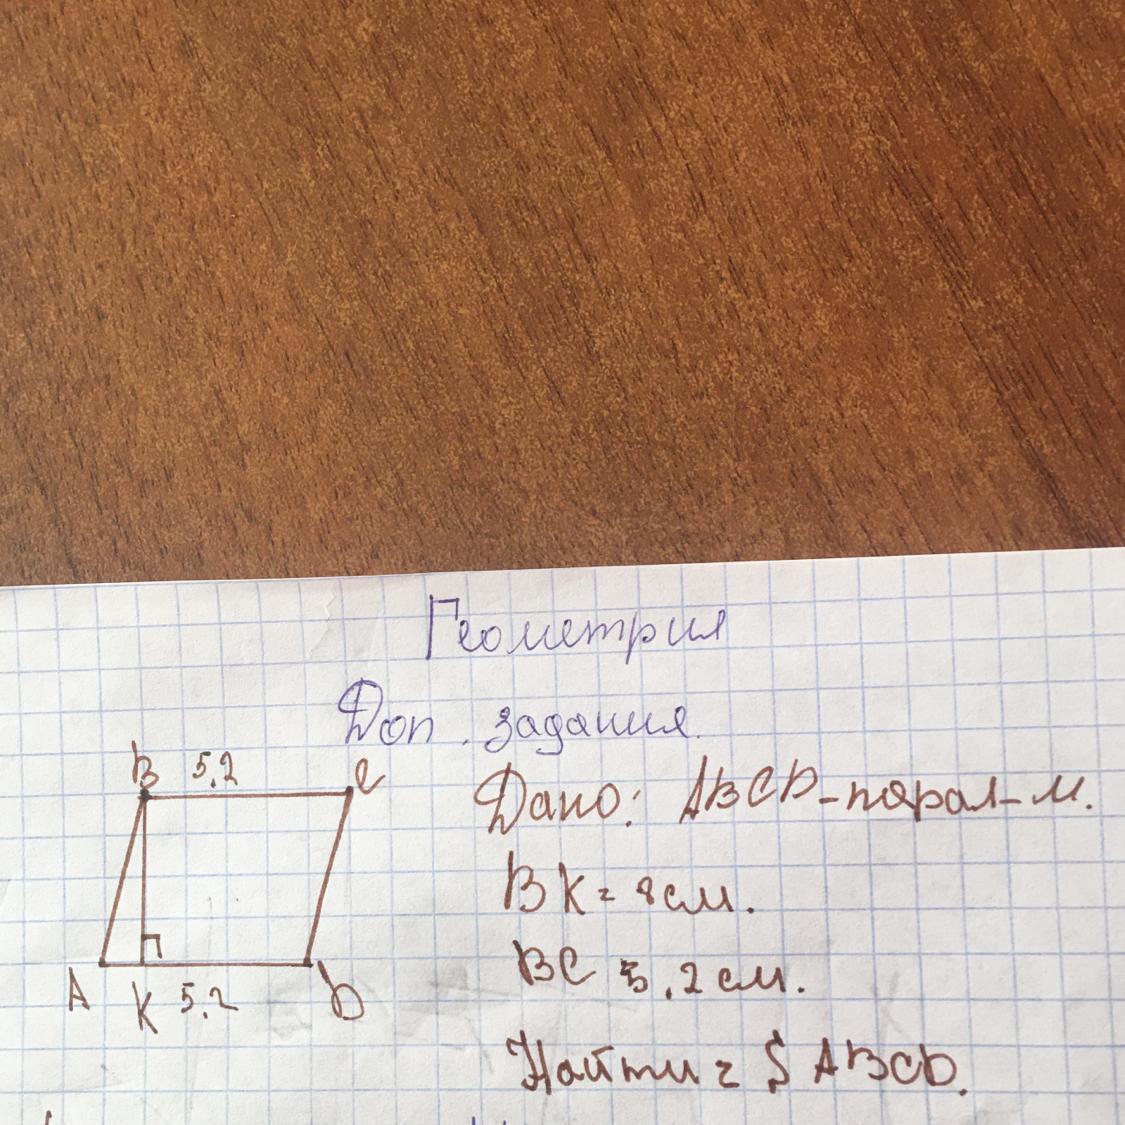 Геометрия
Доп. задания.
B 5,2 C
Дано: ABCD-парал-м.
BK = 8 см.
BC 5,2 см.
A K 5,2 D
Найти = S ABCD.